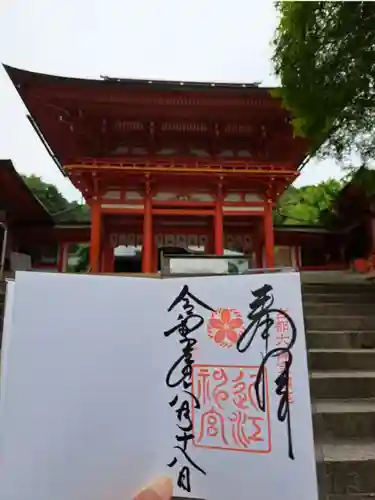 奉拝
都大
近江
神宮
令和
年八月十八日